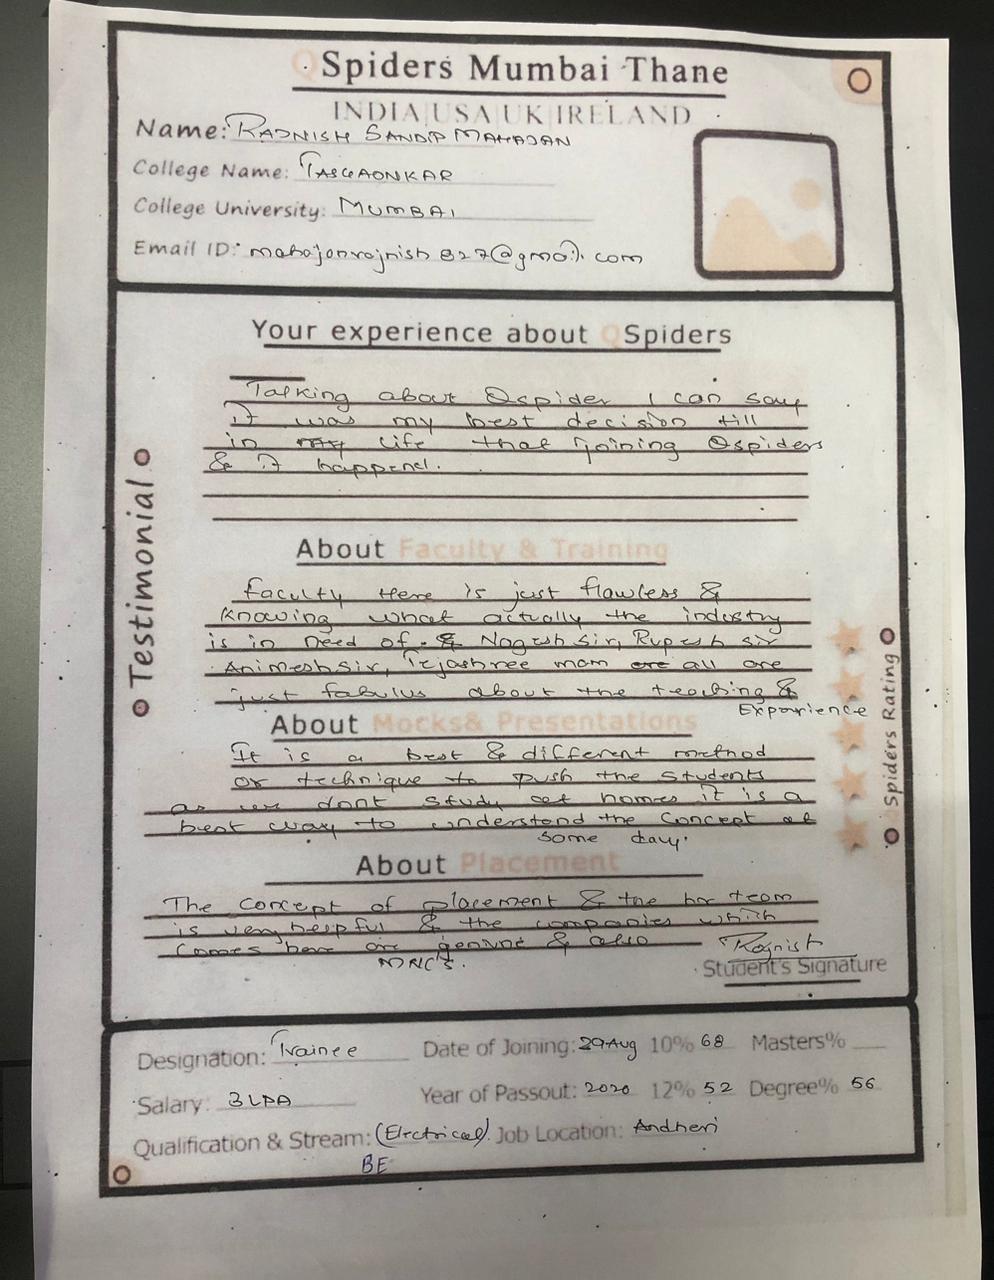 QSpiders Mumbai Thane
INDIA|USA|UK|IRELAND
Name: RAJNISH SANDIP MAHAJAN
College Name: TASGAONKAR
College University: MUMBAI
Email ID: mahajanrajnish827@gmail.com
Your experience about QSpiders
Talking about Qspider I can say
it was my best decision till
in my life that joining Qspiders
& it happend.
Testimonial
About Faculty & Training
faculty here is just flawless &
knowing what actually the industry
is in need of. & Nagesh sir, Rupesh sir
Animesh sir, Tejashree mam are all are
just fabulus about the teaching &
Experience
About Mocks& Presentations
It is a best & different method
or technique to push the students
as we dont study at homes it is a
best way to understand the concept at
some day.
QSpiders Rating
About Placement
The concept of placement & the hr team
is very helpful & the companies which
comes here are genuine & also
MNC's.
Rajnish
Student's Signature
Designation: Trainee Date of Joining: 29 Aug 10% 68 Masters%
Salary: 3 LPA Year of Passout: 2020 12% 52 Degree% 56
Qualification & Stream: (Electrical) Job Location: Andheri
BE